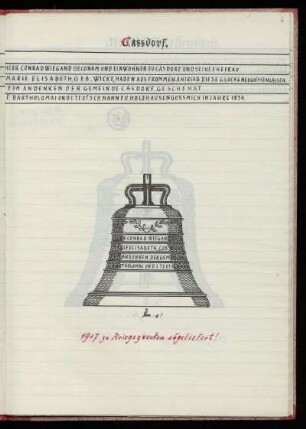 Gassdorf.
HERR CONRAD WIEGAND OECONOM UND EINWOHNER ZU CASDORF UND SEINE EHEFRAU
MARIE ELISABETH, GEB. WICKE, HABEN AUS FROMMEN ANTRIEB DIESE GLOCKE NEU GIESSEN LASSEN.
ZUM ANDENKEN DER GEMEINDE CASDORF GESCHENKT
F. BARTHOLOMAI UND I. TEUTSCHMANN ZU HOLZHAUSEN GOSS MICH IM JAHRE 1834.
R CONRAD WIEGAN
E ELISABETH, GEB
ANDENKEN DER GEM
THOLOMAI UND I. TEUTS
1917 zu Kriegszwecken abgeliefert!